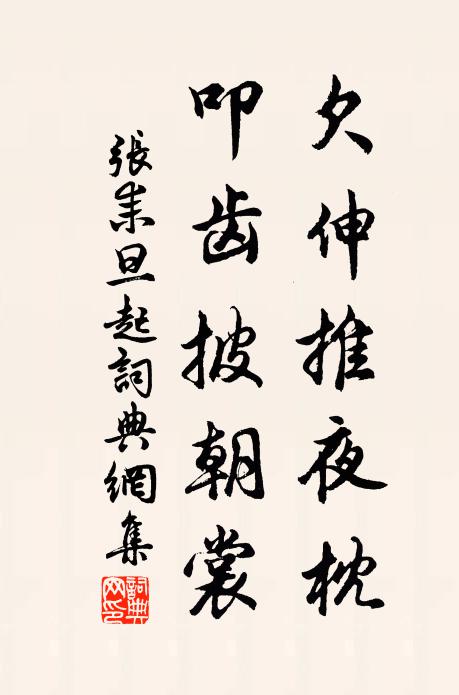 欠伸推夜枕
叩齿披朝裳
張耒旦起詞典網集
詞典网印